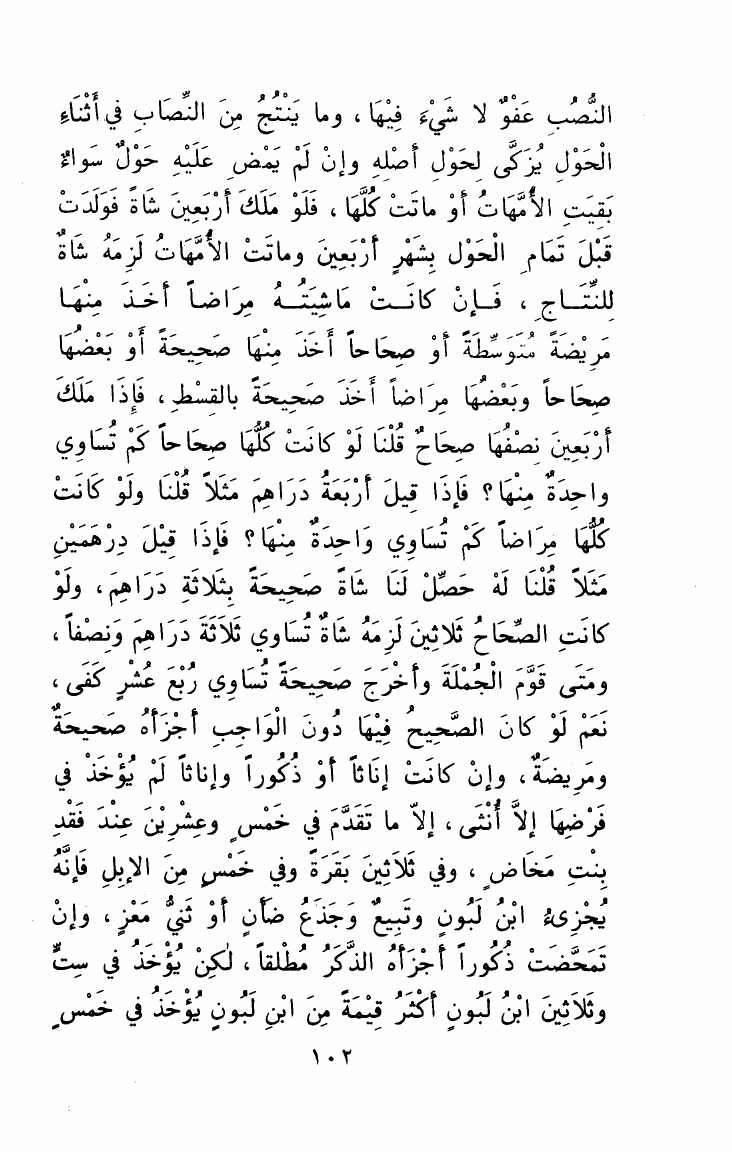 النُّصُبِ عَفْوٌ لا شَيْءَ فِيْهَا ، وما يَنْتُجُ مِنَ النِّصَابِ في أَثْنَاءِ
الْحَوْلِ يُزَكَّى لِحَوْلِ أَصْلِهِ وإنْ لَمْ يَمْضِ عَلَيْهِ حَوْلٌ سَواءٌ
بَقِيَتِ الأُمَّهَاتُ أَوْ ماتَتْ كُلُّهَا ، فَلَوْ مَلَكَ أَرْبَعِينَ شَاةً فَوَلَدَتْ
قَبْلَ تَمَامِ الْحَوْلِ بِشَهْرٍ أَرْبَعِينَ وماتَتْ الأُمَّهَاتُ لَزِمَهُ شَاةٌ
لِلنِّتَاجِ ، فَإنْ كانَتْ مَاشِيَتُهُ مِرَاضاً أخَذَ مِنْهَا
مَرِيْضَةً مُتَوَسِّطَةً أوْ صِحَاحاً أَخَذَ مِنْهَا صَحِيحَةً أَوْ بَعْضُهَا
صِحاحاً وبَعْضُهَا مِرَاضاً أَخَذَ صَحِيحَةً بالقِسْطِ ، فَإِذَا مَلَكَ
أرْبَعِينَ نِصْفُهَا صِحَاحٌ قُلْنَا لَوْ كانَتْ كُلُّهَا صِحَاحاً كَمْ تُسَاوِي
واحِدَةٌ مِنْهَا ؟ فَإذَا قِيلَ أَرْبَعَةُ دَرَاهِمَ مَثَلاً قُلْنَا ولَوْ كَانَتْ
كُلُّهَا مِرَاضاً كَمْ تُسَاوِي وَاحِدَةٌ مِنْهَا ؟ فَإذَا قِيْلَ دِرْهَمَيْنِ
مَثَلاً قُلْنَا لَهُ حَصِّلْ لَنَا شَاةً صَحِيحَةً بِثَلاثَةِ دَرَاهِمَ ، ولَوْ
كانَتِ الصِّحَاحُ ثَلاثِينَ لَزِمَهُ شَاةٌ تُسَاوي ثَلاَثَةَ دَرَاهِمَ وَنِصْفاً ،
ومَتَى قَوَّمَ الْجُمْلَةَ وأخْرَجَ صَحِيحَةً تُسَاوِي رُبْعَ عُشْرٍ كَفَى ،
نَعَمْ لَوْ كانَ الصَّحِيحُ فِيْهَا دُونَ الْوَاجِبِ أَجْزَأَهُ صَحيحَةٌ
ومَرِيضَةٌ ، وإنْ كانَتْ إنَاثاً أوْ ذُكُوراً وإناثاً لَمْ يُؤْخَذْ في
فَرْضِهَا إلاَّ أُنْثَى ، إلاّ ما تَقَدَّمَ في خَمْسٍ وعِشْرِيْنَ عِنْدَ فَقْدِ
بِنْتِ مَخَاضٍ ، وفي ثَلاَثِينَ بَقَرَةً وفي خَمْسٍ مِنَ الإبِلِ فَإنَّهُ
يُجْزِىءُ ابْنُ لَبُونٍ وتَبِيعٌ وَجَذَعُ ضَأنٍ أوْ ثَنِيُّ مَعْزٍ ، وإنْ
تَمَحَّضَتْ ذُكُوراً أَجْزَأهُ الذَّكَرُ مُطْلَقاً ، لٰكِنْ يُؤْخَذُ في سِتٍّ
وثَلاَثِينَ ابْنُ لَبُونٍ أكْثَرُ قِيْمَةً مِنَ ابْنِ لَبُونٍ يُؤْخَذُ في خَمْسٍ
١٠٢